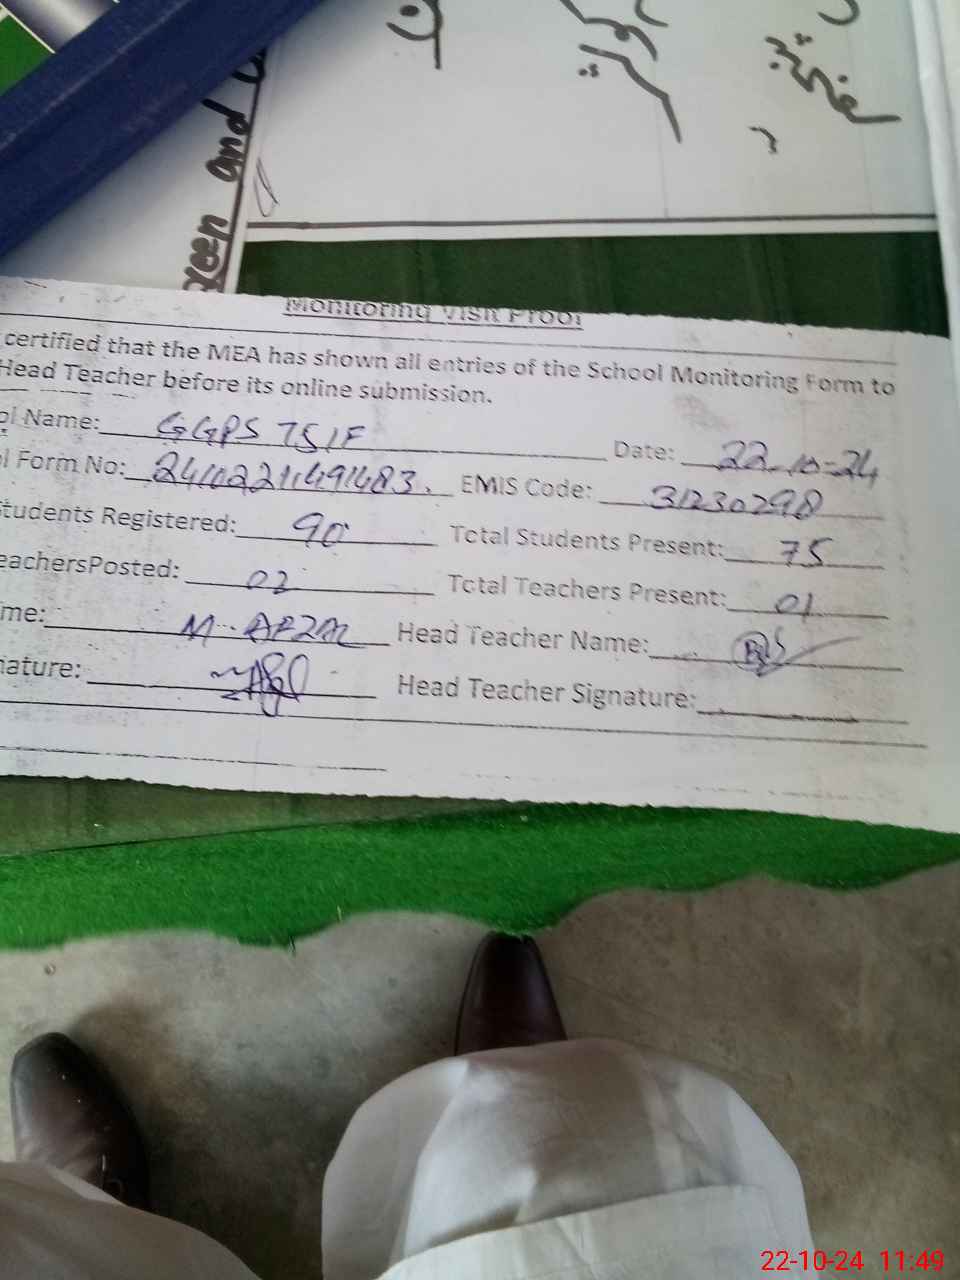 and
Monitoring Visit Proof
certified that the MEA has shown all entries of the School Monitoring Form to
Head Teacher before its online submission.
ol Name: GGPS 75/F Date: 22-10-24
l Form No: EMIS Code: 31230298
tudents Registered: 90 Total Students Present: 75
eachersPosted: 02 Total Teachers Present: 01
me: M. AFZAL Head Teacher Name:
nature: Head Teacher Signature:
22-10-24 11:49